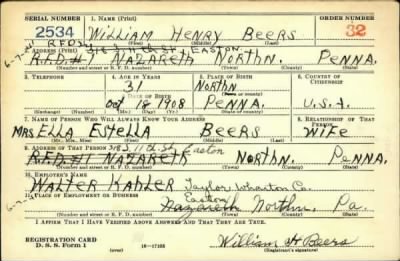 SERIAL NUMBER 1. NAME (Print) ORDER NUMBER
2534 WILLIAM HENRY BEERS 32
(First) (Middle) (Last)
R.F.D.#1 NAZARETH NORTHN. PENNA.
EASTON
(Number and street or R. F. D. number) (Town) (County) (State)
3. TELEPHONE 4. AGE IN YEARS 5. PLACE OF BIRTH 6. COUNTRY OF CITIZENSHIP
31 NORTHN
DATE OF BIRTH (Town or county)
Oct 18 1908 PENNA. U.S.A.
(Exchange) (Number) (Mo.) (Day) (Yr.) (State or country)
7. NAME OF PERSON WHO WILL ALWAYS KNOW YOUR ADDRESS 8. RELATIONSHIP OF THAT PERSON
MRS ELLA ESTELLA BEERS WIFE
(Mr., Mrs., Miss) (First) (Middle) (Last)
9. ADDRESS OF THAT PERSON 11th St Easton
R.F.D.#1 NAZARETH NORTHN. PENNA.
(Number and street or R. F. D. number) (Town) (County) (State)
10. EMPLOYER'S NAME
WALTER KAHLER Taylor Wharton Co.
11. PLACE OF EMPLOYMENT OR BUSINESS Easton
Nazareth Northn. Pa.
(Number and street or R. F. D. number) (Town) (County) (State)
I AFFIRM THAT I HAVE VERIFIED ABOVE ANSWERS AND THAT THEY ARE TRUE.
REGISTRATION CARD
D. S. S. Form 1 16—17105 William H Beers
(Registrant's signature)